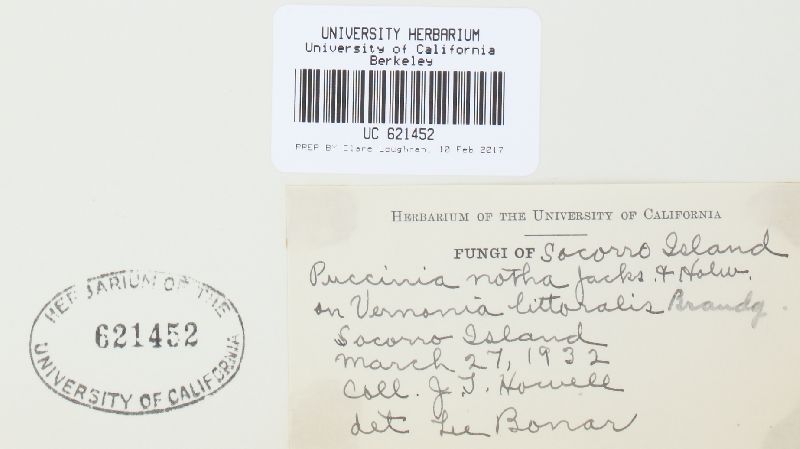 UNIVERSITY HERBARIUM
University of California
Berkeley
UC 621452
PREP BY Clare Loughran, 10 Feb 2017
HERBARIUM OF THE UNIVERSITY OF CALIFORNIA
FUNGI OF Socorro Island
Puccinia notha Jacks. & Holw.
on Vernonia littoralis Brandg.
Socorro Island
March 27, 1932
Coll. J. T. Howell
det Lee Bonar
HERBARIUM OF THE
621452
UNIVERSITY OF CALIFORNIA